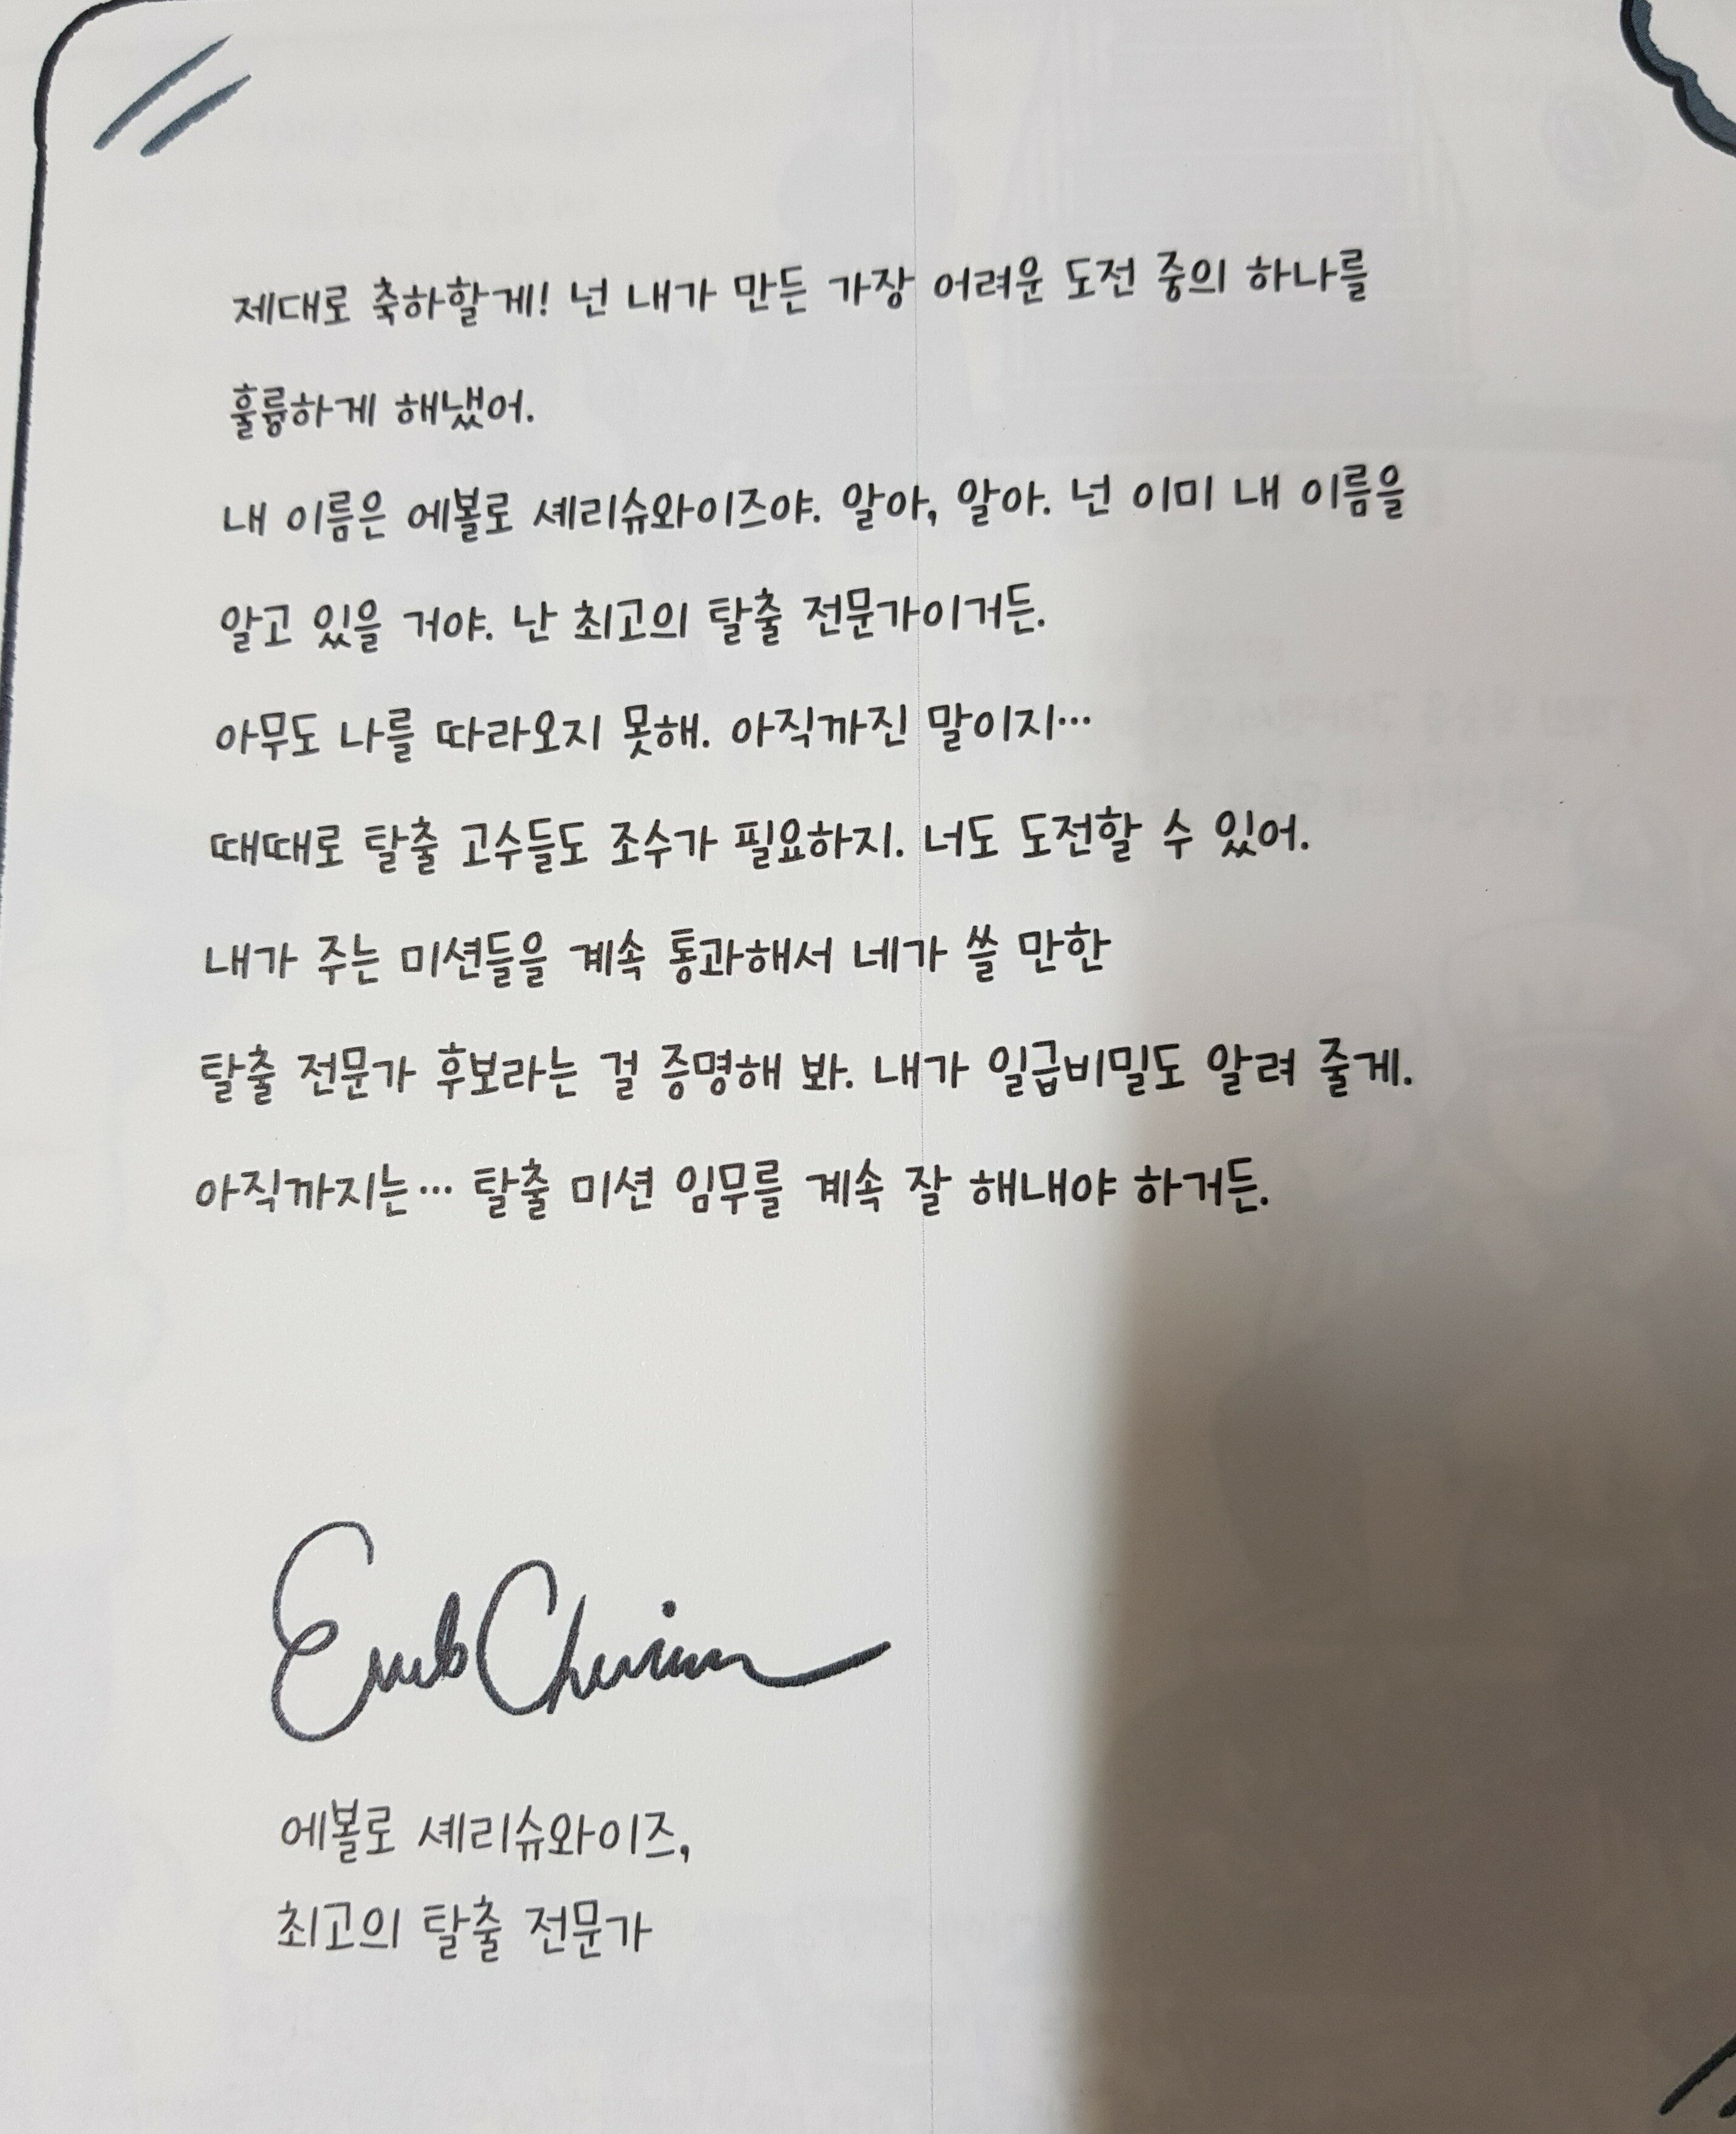 제대로 축하할게! 넌 내가 만든 가장 어려운 도전 중의 하나를
훌륭하게 해냈어.
내 이름은 에볼로 셰리슈와이즈야. 알아, 알아. 넌 이미 내 이름을
알고 있을 거야. 난 최고의 탈출 전문가이거든.
아무도 나를 따라오지 못해. 아직까진 말이지…
때때로 탈출 고수들도 조수가 필요하지. 너도 도전할 수 있어.
내가 주는 미션들을 계속 통과해서 네가 쓸 만한
탈출 전문가 후보라는 걸 증명해 봐. 내가 일급비밀도 알려 줄게.
아직까지는… 탈출 미션 임무를 계속 잘 해내야 하거든.
에볼로 셰리슈와이즈,
최고의 탈출 전문가